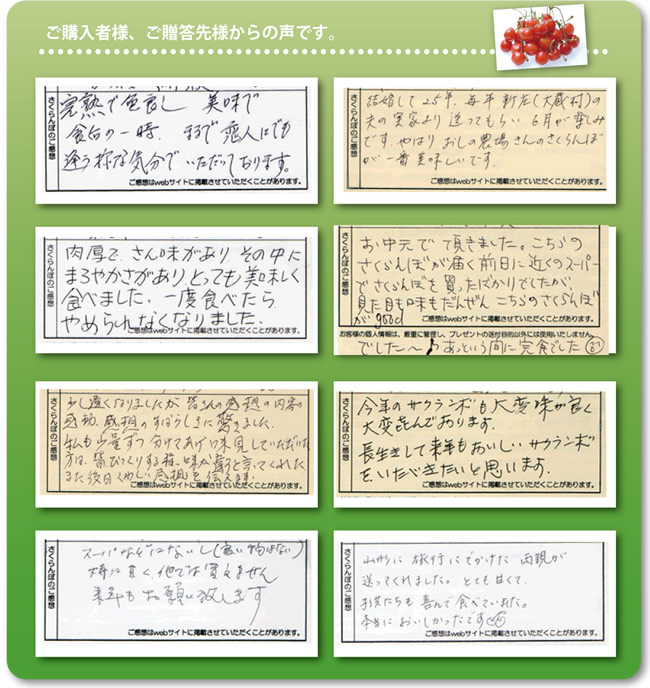 ご購入者様、ご贈答先様からの声です。
さくらんぼのご感想
完熟で色良し 美味で
食白の一時、まるで恋人にでも
逢う様な気分でいただいております。
ご感想はwebサイトに掲載させていただくことがあります。
さくらんぼのご感想
結婚して25年、毎年新庄(大蔵村)の
夫の実家より送ってもらい 6月が楽しみ
です。やはり おしの農場さんのさくらんぼ
が一番美味しいです。
ご感想はwebサイトに掲載させていただくことがあります。
さくらんぼのご感想
肉厚で、さん味があり、その中に
まろやかさがあり、とっても美味しく
食べました。一度食べたら
やめられなくなりました。
ご感想はwebサイトに掲載させていただくことがあります。
さくらんぼのご感想
お中元で頂きました。こちらの
さくらんぼが届く前日に近くのスーパー
でさくらんぼを買ったばかりでしたが、
見た目も味もだんぜん こちらのさくらんぼ
が good
ご感想はwebサイトに掲載させていただくことがあります。
お客様の個人情報は、厳重に管理し、プレゼントの送付目的以外には使用いたしません。
でした〜♪あっという間に完食でした
さくらんぼのご感想
少し遅くなりましたが 皆さんの感想の内容の
感動、感想のすばらしさに驚きました。
私も少量ずつ 分けてあげ味見していただいた
方は、皆びっくりする程、味が違うと言ってくれた
ご感想はwebサイトに掲載させていただくことがあります。
さくらんぼのご感想
今年のサクランボも大変味が良く
大変喜んでおります。
長生きして来年もおいしいサクランボ
をいただきたいと思います。
ご感想はwebサイトに掲載させていただくことがあります。
さくらんぼのご感想
スーパなどにないし(良い物はない)
特に甘く、他では買えません
来年もお願い致します
ご感想はwebサイトに掲載させていただくことがあります。
さくらんぼのご感想
山形に旅行にでかけた両親が
送ってくれました。とても甘くて、
子供たちも喜んで食べていました。
本当においしかったです
ご感想はwebサイトに掲載させていただくことがあります。